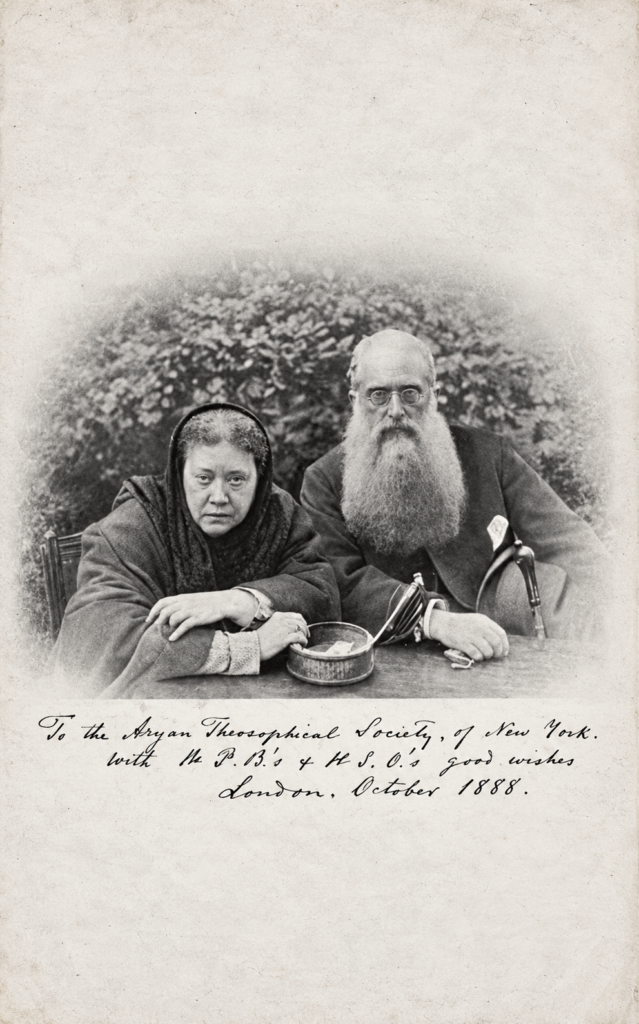 To the Aryan Theosophical Society, of New York.
with H P. B.'s & H S. O.'s good wishes
London, October 1888.